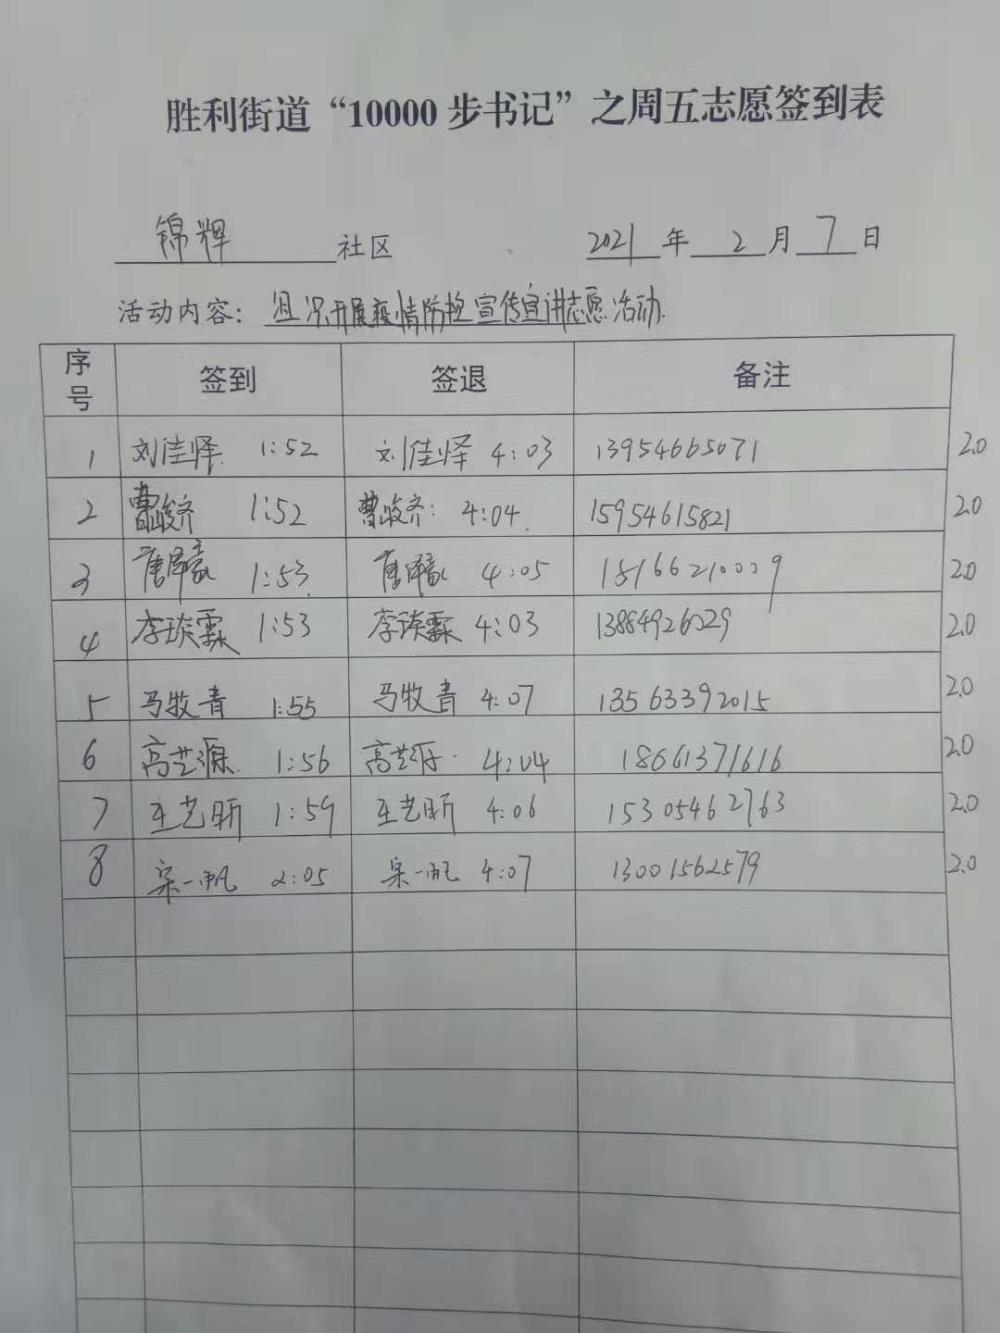 胜利街道“10000步书记”之周五志愿签到表
锦辉 社区 2021 年 2 月 7 日
活动内容：组织开展疫情防控宣传宣讲志愿活动
序号 签到 签退 备注
1 刘佳怿 1:52 刘佳怿 4:03 13954665071 2.0
2 曹峻齐 1:52 曹峻齐 4:04 15954615821 2.0
3 唐泽豪 1:53 唐泽豪 4:05 15166210009 2.0
4 李琰霖 1:53 李琰霖 4:03 13884926029 2.0
5 马牧青 1:55 马牧青 4:07 13563392015 2.0
6 高艺源 1:56 高艺源 4:04 18661371616 2.0
7 王艺昕 1:59 王艺昕 4:06 15305462763 2.0
8 宋一帆 2:05 宋一帆 4:07 13001562579 2.0